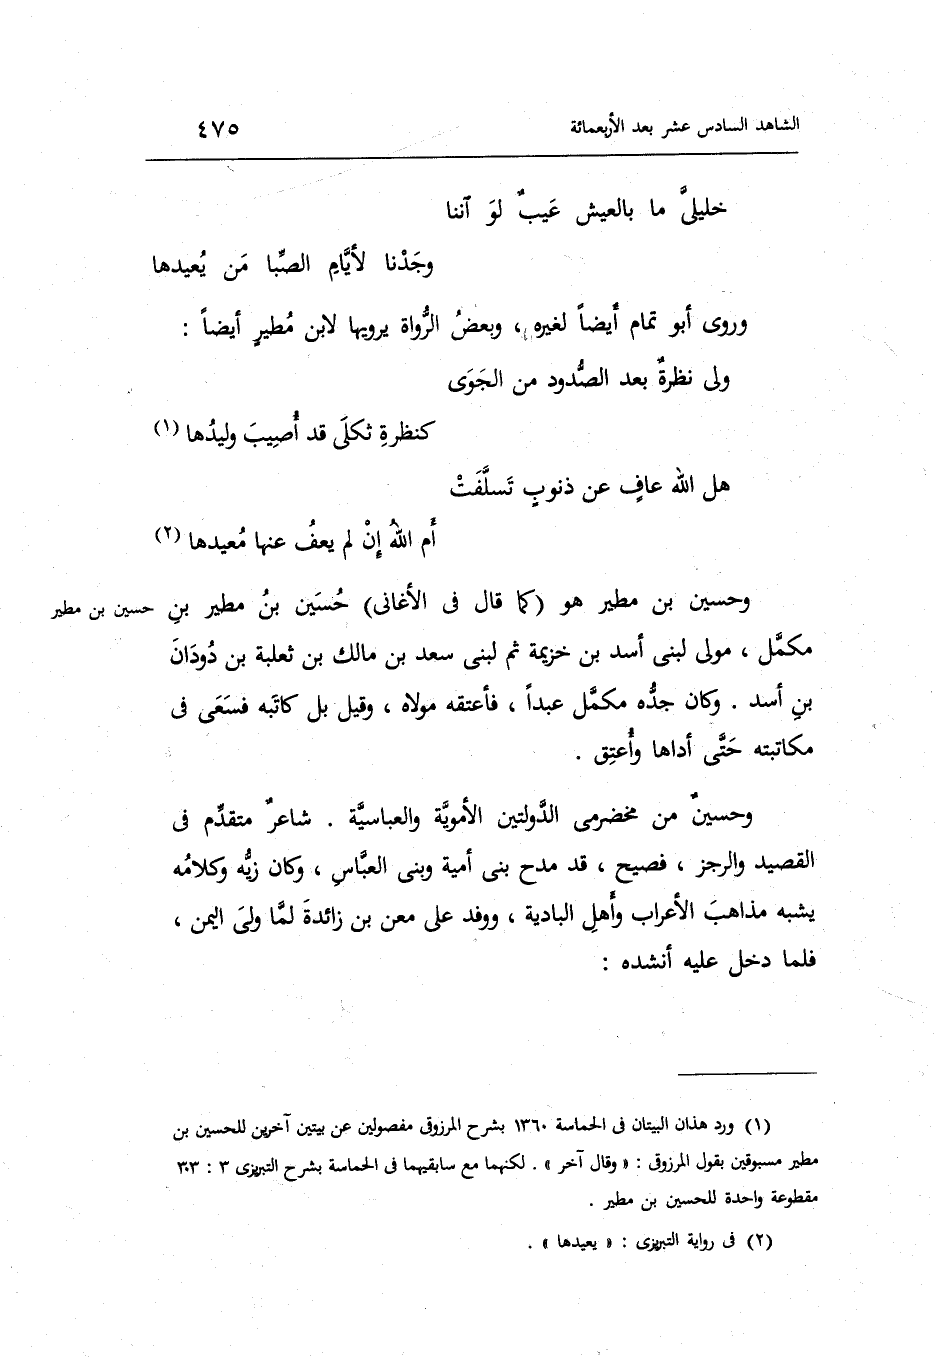 الشاهد السادس عشر بعد الأربعمائة ٤٧٥
خليليَّ ما بالعيش عَيبٌ لوَ آننا
وجَدْنا لأيَّامِ الصِّبا مَن يُعيدها
وروى أبو تمام أيضاً لغيره ، وبعضُ الرُّواة يرويها لابن مُطيرٍ أيضاً :
ولى نظرةٌ بعد الصُّدود من الجَوَى
كنظرةِ ثكلَى قد أُصيبَ وليدُها (١)
هل الله عافٍ عن ذنوبٍ تَسلَّفَتْ
أَم اللهُ إِنْ لم يعفُ عنها مُعيدها (٢)
وحسين بن مطير هو (كما قال فى الأغانى) حُسَين بنُ مطير بنِ حسين بن مطير
مكمَّل ، مولى لبنى أسد بن خزيمة ثم لبنى سعد بن مالك بن ثعلبة بن دُودَانَ
بنِ أسد . وكان جدُّه مكمَّل عبداً ، فأعتقه مولاه ، وقيل بل كاتَبه فسَعَى فى
مكاتبته حَتَّى أداها وأُعتِق .
وحسينٌ من مخضرمى الدَّولتين الأمويَّة والعباسيَّة . شاعرٌ متقدِّم فى
القصيد والرجز ، فصيح ، قد مدح بنى أمية وبنى العبَّاسِ ، وكان زيُّه وكلامُه
يشبه مذاهبَ الأعراب وأَهلِ البادية ، ووفد على معن بن زائدةَ لمَّا ولىَ اليمن ،
فلما دخل عليه أنشده :
(١) ورد هذان البيتان فى الحماسة ١٣٦٠ بشرح المرزوق مفصولين عن بيتين آخرين للحسين بن
مطير مسبوقين بقول المرزوقى : « وقال آخر » . لكنهما مع سابقيهما فى الحماسة بشرح التبريزى ٣ : ٣٠٣
مقطوعة واحدة للحسين بن مطير .
(٢) فى رواية التبريزى : « يعيدها » .